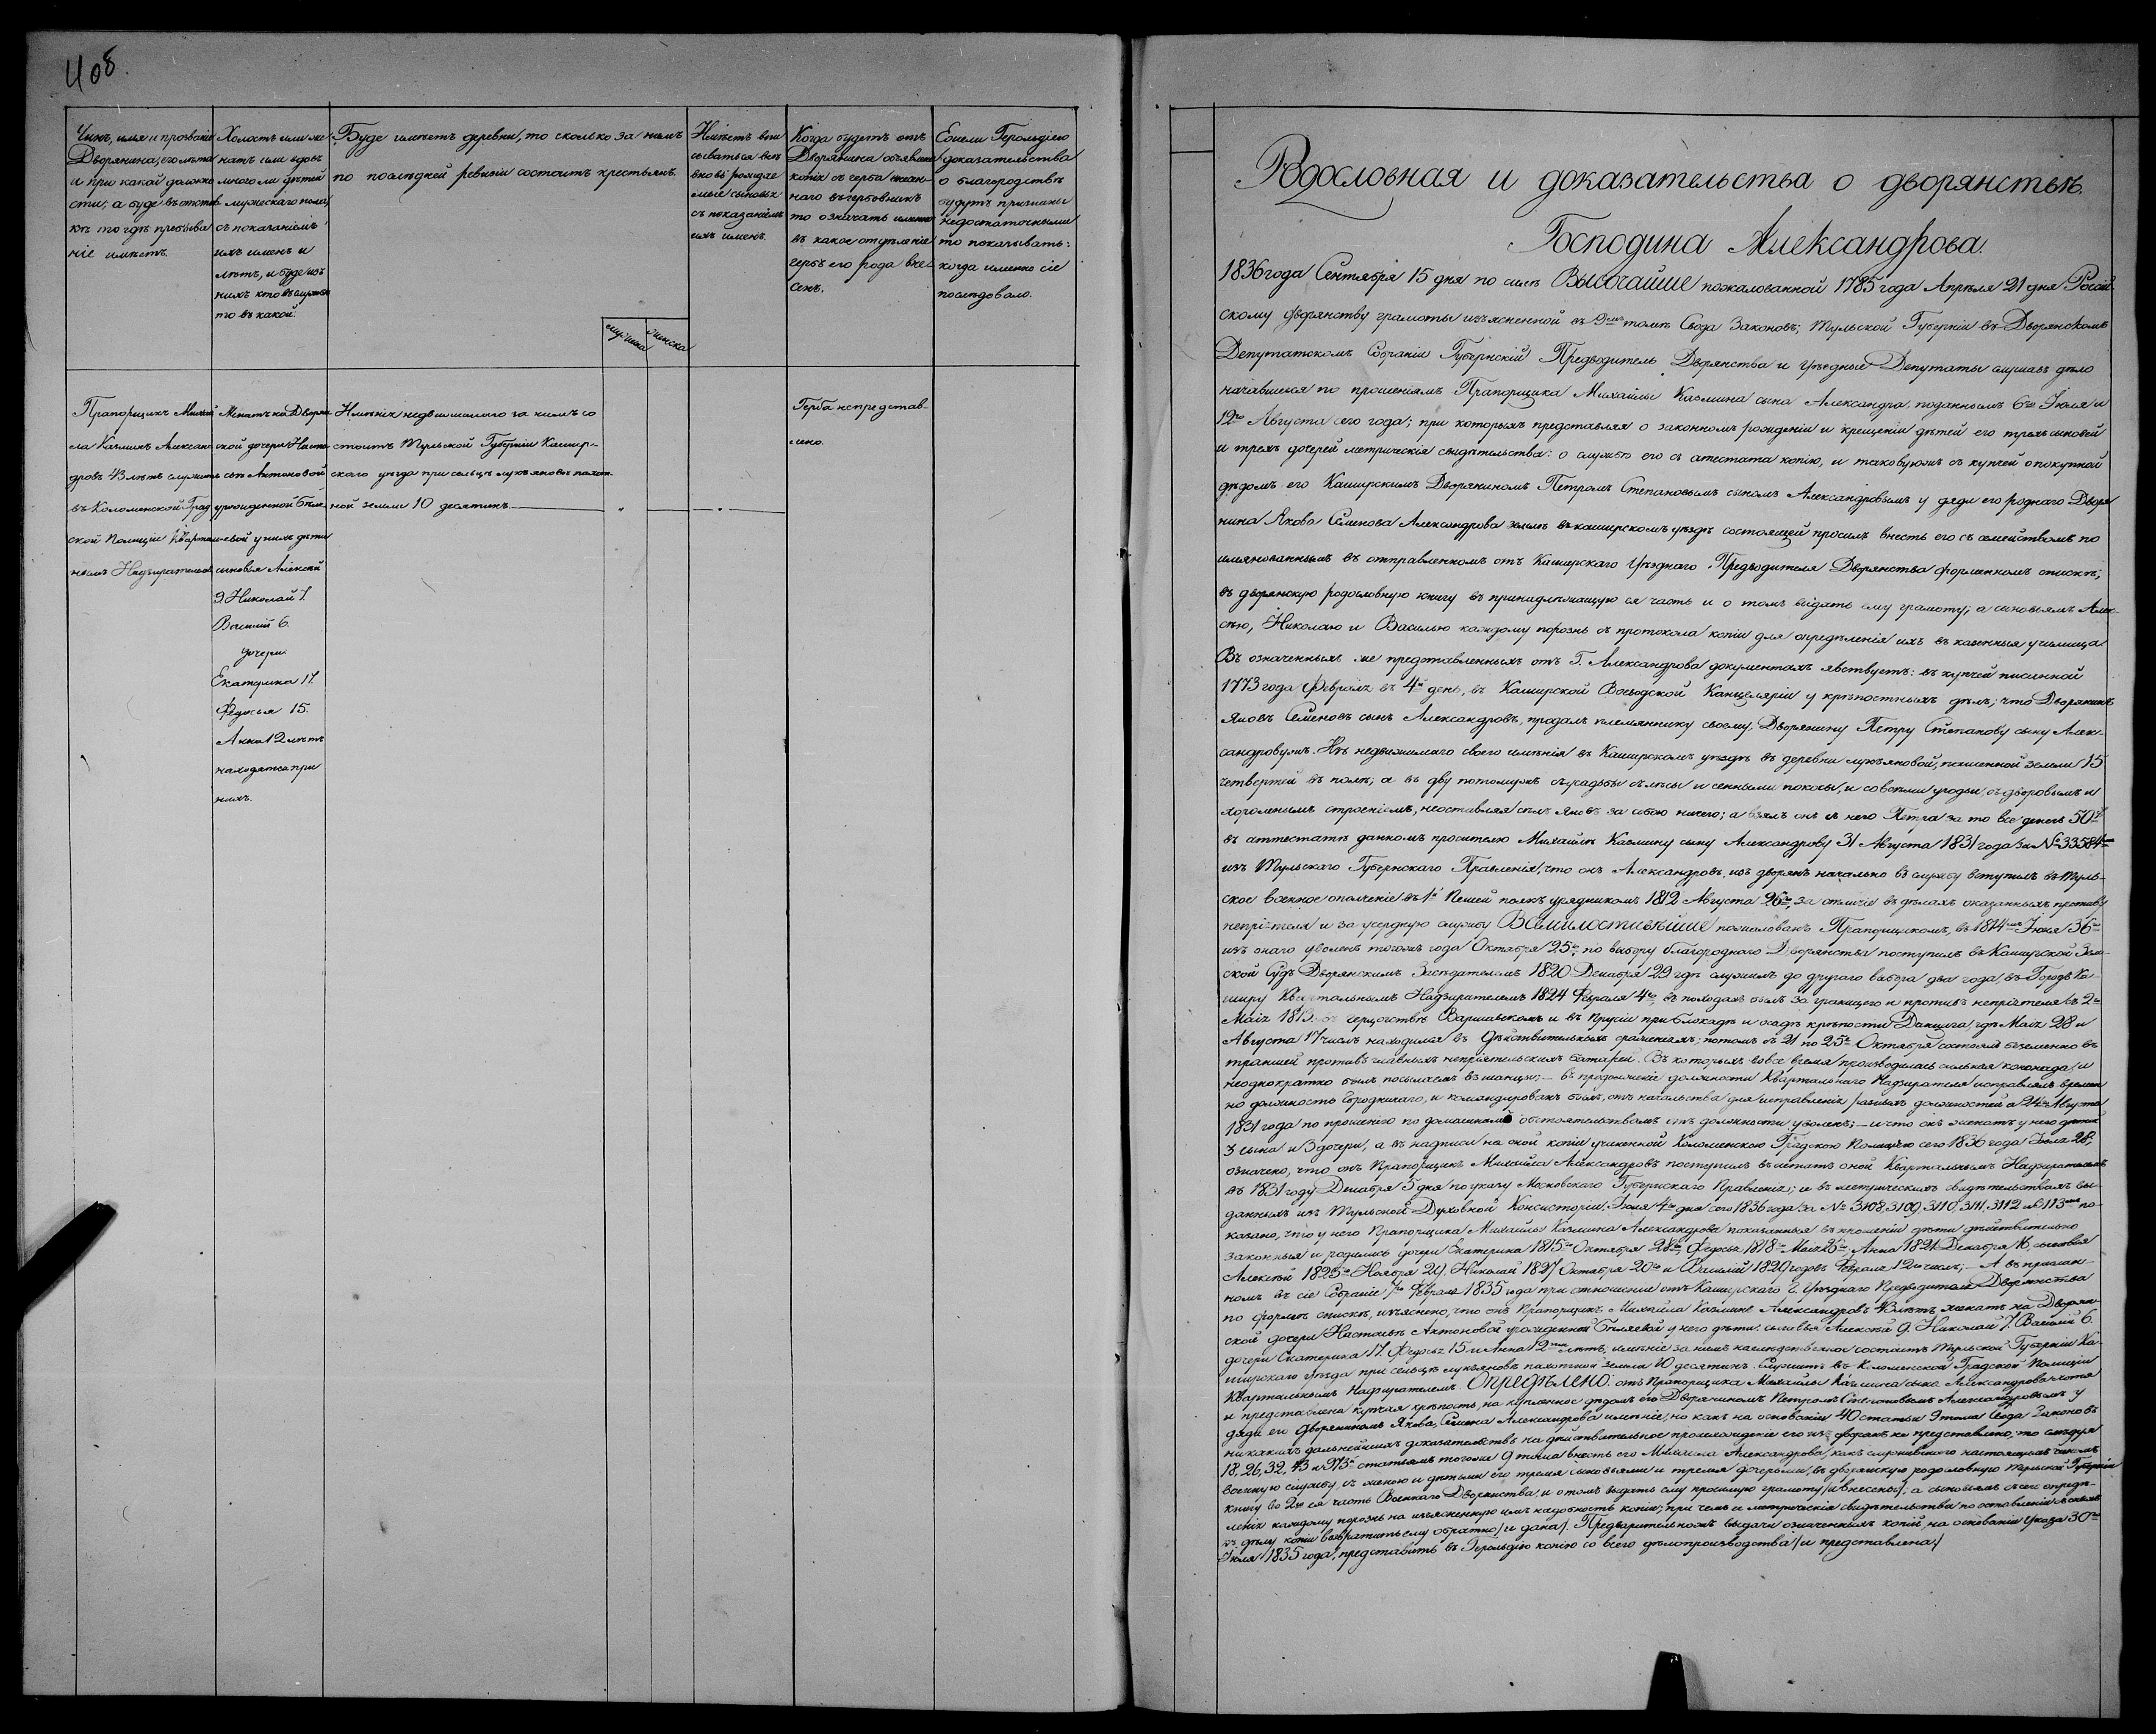 408.
Чинъ, имя и прозваніе
Дворянина, его лѣта
и при какой должно
сти; а буде въ отстав
кѣ то гдѣ пребыва
ніе имѣетъ.
Холостъ или же
натъ или вдовъ
много ли дѣтей
мужескаго пола,
съ показаніемъ
ихъ именъ и
лѣтъ, и буде изъ
нихъ кто въ службѣ
то въ какой.
Буде имѣетъ деревни, то сколько за нимъ
по послѣдней ревизіи состоитъ крестьянъ.
мужска
женска
Имѣетъ впи
сываться впе
вновь рождае
мые сыновья
съ показаніемъ
ихъ именъ.
Когда будетъ отъ
Дворянина объявлена
копія съ герба
наго въ гербовникъ
то означать именно
въ какое отдѣленіе
гербъ его рода вне
сенъ.
Ежели Герольдіею
доказательства
о благородствѣ
будутъ признаны
недостаточными
то показывать:
когда именно сіе
послѣдовало.
Прапорщикъ Михай
ла Казминъ Алексан
дровъ 43 лѣтъ служитъ
въ Коломенской Град
ской Полиціи Кварталь
нымъ Надзирателемъ
Женатъ на Дворян
ской дочери Наста
сьѣ Антоновой
урожденной Бѣля
евой у нихъ дѣти
сыновья Алексѣй
9. Николай 7.
Василій 6.
дочери
Екатерина 17.
Федосья 15.
Анна 12 лѣтъ
находятся при
нихъ.
Имѣнія недвижимаго за нимъ со
стоитъ Тульской Губерніи Кашир-
скаго уѣзда при сельцѣ лукьяновѣ пахот
ной земли 10 десятинъ.
Герба непредстав-
лено.
Родословная и доказательства о дворянствѣ
Господина Александрова.
1836 года Сентября 15 дня по силѣ Высочайше пожалованной 1785 года Апрѣля 21 дня Россій
скому дворянству грамоты изъясненной въ 9мъ томѣ Свода Законовъ; Тульской Губерніи въ Дворянскомъ
Депутатскомъ Собраніи Губернскій Предводитель Дворянства и Уѣздные Депутаты слушавъ дѣло
начавшееся по прошеніямъ Прапорщика Михайлы Казмина сына Александра, поданнымъ 6го Іюля и
12го Августа сего года; при которыхъ представляя о законномъ рожденіи и крещеніи дѣтей его трехъ сыновей
и трехъ дочерей метрическія свидѣтельства: о службѣ его съ атестата копію, и таковуюжъ съ купчей о покупкой
дѣдомъ его Каширскимъ Дворяниномъ Петромъ Степановымъ сыномъ Александровымъ у дяди его роднаго Дворя
нина Якова Семенова Александрова землѣ въ каширскомъ уѣздѣ состоящей просилъ внесть его съ семействомъ по
имянованнымъ въ отправленномъ отъ Каширскаго Уѣзднаго Предводителя Дворянства форменномъ спискѣ;
въ дворянскую родословную книгу въ принадлежащую ея часть и о томъ выдать ему грамоту; а сыновьямъ Алек-
сѣю, Николаю и Василью каждому порознь съ протокола копіи для опредѣленія ихъ въ казенныя училища
Въ означенныхъ же представленныхъ отъ Г. Александрова документахъ явствуетъ: въ купчей писанной
1773 года Февраля въ 4й день, въ Каширской Воеводской Канцеляріи у крѣпостныхъ дѣлъ; что Дворянинъ
Яковъ Семеновъ сынъ Александровъ, продалъ племяннику своему, Дворянину Петру Степанову сыну Алек-
сандровужъ. Изъ недвижимаго своего имѣнія въ Каширскомъ уѣздѣ въ деревни лукъяновой, пашенной земли 15
четвертей въ полѣ, а въ дву потомужъ съ усадьбы съ лѣсы и сенными покосы, и совсѣми угодьи, съ дворовымъ и
хоромнымъ строеніемъ, неоставляя онъ Яковъ за собою ничего; а взялъ онъ съ него Петра за то все денегъ 50 р.
въ аттестатѣ данномъ просителю Михайлѣ Казмину сыну Александрову 31 Августа 1831 года за № 33584
изъ Тульскаго Губернскаго Правленія, что онъ Александровъ, изъ дворянъ начально въ службу вступилъ въ Туль-
ское военное ополченіе въ 1й Пешей полкъ урядникомъ 1812 Августа 26го, за отличіе въ дѣлахъ оказанныхъ противу
непріятеля и за усердную службу Всемилостивѣйше пожалованъ Прапорщикомъ, въ 1814мъ Іюня
изъ онаго уволенъ тогожъ года Октября 25го, по выбору благороднаго Дворянства поступилъ въ Каширской Зем-
ской Судъ Дворянскимъ Засѣдателемъ 1820 Декабря 29 гдѣ служилъ до другаго выбора два года, въ Городъ Ка-
ширу Квартальнымъ Надзирателемъ 1824 Февраля 4го, въ походахъ былъ за границею и противъ непріятеля съ 2го
Маія 1813 въ герцогствѣ Варшавскомъ и въ Прусіи при блокадѣ и осадѣ крѣпости Данцига, гдѣ Маія 28 и
Августа 17 числъ находился въ дѣйствительныхъ сраженіяхъ; потомъ съ 21 по 25е Октября состоялъ безсменно въ
траншей противъ главныхъ непріятельскихъ батарей. Въ которыхъ вовсе время производилась сильная кононада, и
неоднократно былъ посылаемъ въ шанцы; — въ продолженіе должности Квартальнаго Надзирателя исправлялъ времен
но должность Городничаго, и командированъ былъ, отъ начальства для исправленія разныхъ должностей а 24го Августа
1831 года по прошенію по домашнимъ обстоятельствамъ отъ должности уволенъ; — и что онъ женатъ у него дѣтей
3 сына и 3 дочери, а въ надписи на оной копіи учиненной Коломенскою Градскою Полиціею сего 1836 года Іюля 28,
означено, что онъ Прапорщикъ Михайла Александровъ поступилъ въ штатъ оной Квартальнымъ Надзирателемъ
въ 1831 году Декабря 5 дня по указу Московскаго Губернскаго Правленія; и въ метрическихъ свидѣтельствахъ вы-
данныхъ изъ Тульской Духовной Консисторіи, Іюня 4го дня сего 1836 года за № 3108, 3109, 3110, 3111, 3112 и 3113 по-
казано, что у него Прапорщика Михайлы Казмина Александрова показанныя въ прошеніи дѣти дѣйствительно
законныя и родились дочери Екатерина 1815го Октября 28го, Федосья 1818го Маія 26го, Анна 1821 Декабря 16, сыновья
Алексѣй 1825го Ноября 29, Николай 1827 Октября 20го и Василій 1829 годовъ Февраля 12го числъ; — А въ прислан-
номъ въ сіе Собраніе 7го Февраля 1835 года при отношеніи отъ Каширскаго Г. Уѣзднаго Предводителя Дворянства
по формѣ спискѣ, изъяснено, что онъ Прапорщикъ Михайла Казминъ Александровъ 43 лѣтъ женатъ на Дворян
ской дочери Настасьѣ Антоновой урожденной Бѣляевой у него дѣти: сыновья Алексѣй 9. Николай 7. Василій 6.
дочери Екатерина 17. Федосья 15. и Анна 12 лѣтъ, имѣніе за нимъ наслѣдственное состоитъ Тульской Губерніи Ка-
ширскаго уѣзда при сельцѣ лукьяновѣ пахотной земли 10 десятинъ. Служитъ въ Коломенской Градской Полиціи
Квартальнымъ Надзирателемъ. Опредѣлено: отъ Прапорщика Михайлы Казмина сына Александрова хотя
и представлена купчая крѣпость, на купленное дѣдомъ его Дворяниномъ Петромъ Степановымъ Александровымъ у
дяди его Дворяниномъ Якова Семена Александрова имѣніе, но какъ на основаніи 40 статьи 9 тома Свода Законовъ
никакихъ дальнѣйшихъ доказательствъ на дѣйствительное происхожденіе его изъ дворянъ не представлено, то следуя
18, 26, 32, 43 и 973й статьямъ тогоже 9 тома внесть его Михайла Александрова, какъ служившаго настоящимъ чиномъ
военную службу, съ женою и дѣтьми его тремя сыновьями и тремя дочерьми, въ дворянскую родословную Тульской Губерніи
книгу во 2ю ея часть Военнаго Дворянства, и о томъ выдать ему просимую грамоту /и внесены/; а сыновьямъ опредѣ-
ленія каждому порознь на изъясненную имъ надобность копіи; при чемъ и метрическія свидѣтельства по оставленіи съ онымъ
къ дѣлу копіи возвратить ему обратно / и дана/. Предварительножъ выдачи означенныхъ копій, на основаніи Указа 30го
Іюля 1835 года, представить въ Герольдію копію со всего дѣлопроизводства / и представлена /